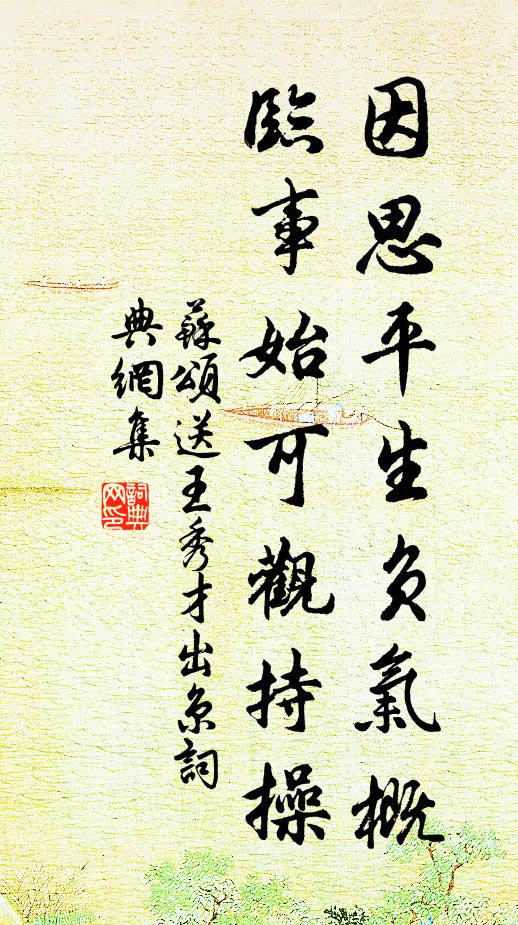 因思平生负氣概
臨事始可觀持操
蘇頌送王秀才出京詞
典網集
詞典
网印